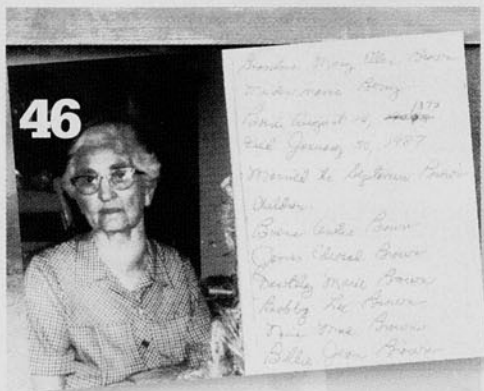 46
Grandma Mary Ellen Brown
Maiden name
Born August 14, 1892
Died January 30, 1987
Married to Brown
Children
Brown
James Edward Brown
Dorothy Marie Brown
Bobby Lee Brown
Mae Brown
Billie Jean Brown